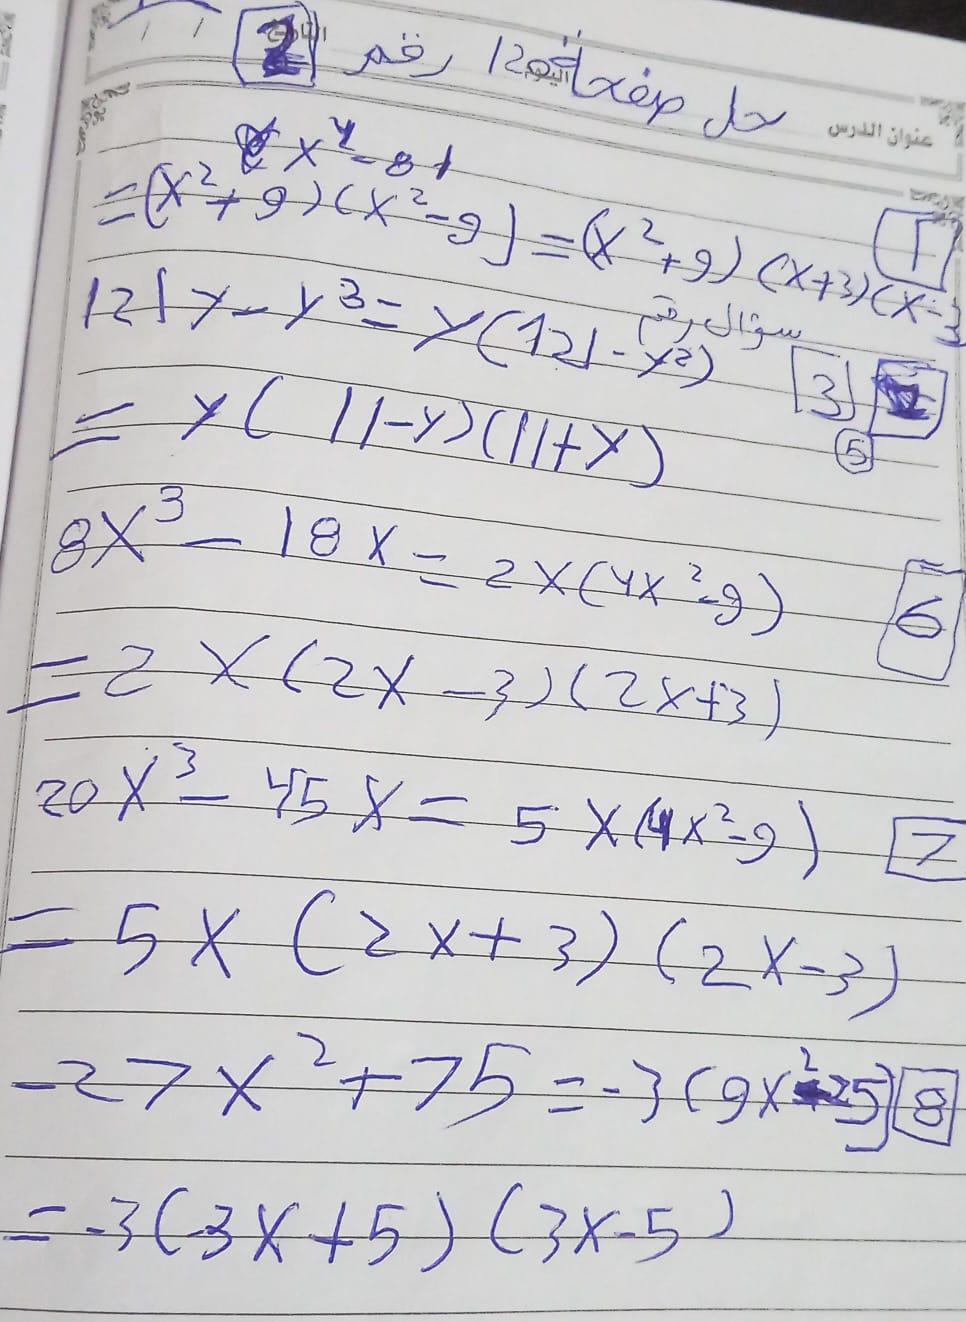 التاريخ
اليوم
حل صفحة 120 رقم 2
عنوان الدرس
x⁴-81
=(x²+9)(x²-9)=(x²+9)(x+3)(x-3 1
سؤال رقم
121y-y³=y(121-y²) 3
=y(11-y)(11+y) 5
8x³-18x=2x(4x²-9) 6
=2x(2x-3)(2x+3)
20x³-45x=5x(4x²-9) 7
=5x(2x+3)(2x-3)
-27x²+75=-3(9x²-25) 8
=-3(3x+5)(3x-5)